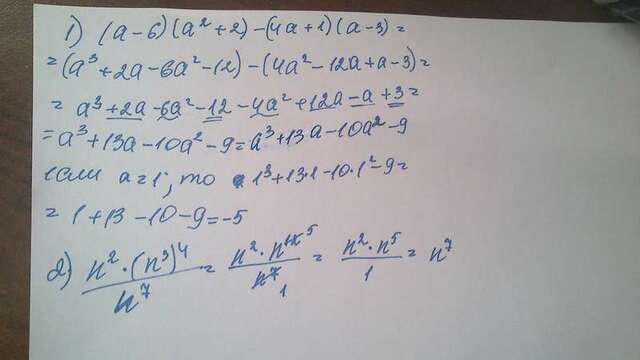 1) (a-6)(a²+2)-(4a+1)(a-3)=
=(a³+2a-6a²-12)-(4a²-12a+a-3)=
=a³+2a-6a²-12-4a²+12a-a+3=
=a³+13a-10a²-9=a³+13a-10a²-9
если a=1, то 1³+13·1-10·1²-9=
=1+13-10-9=-5
2) n²·(n³)⁴/n⁷ = n²·n¹²⁵/n⁷₁ = n²·n⁵/1 = n⁷